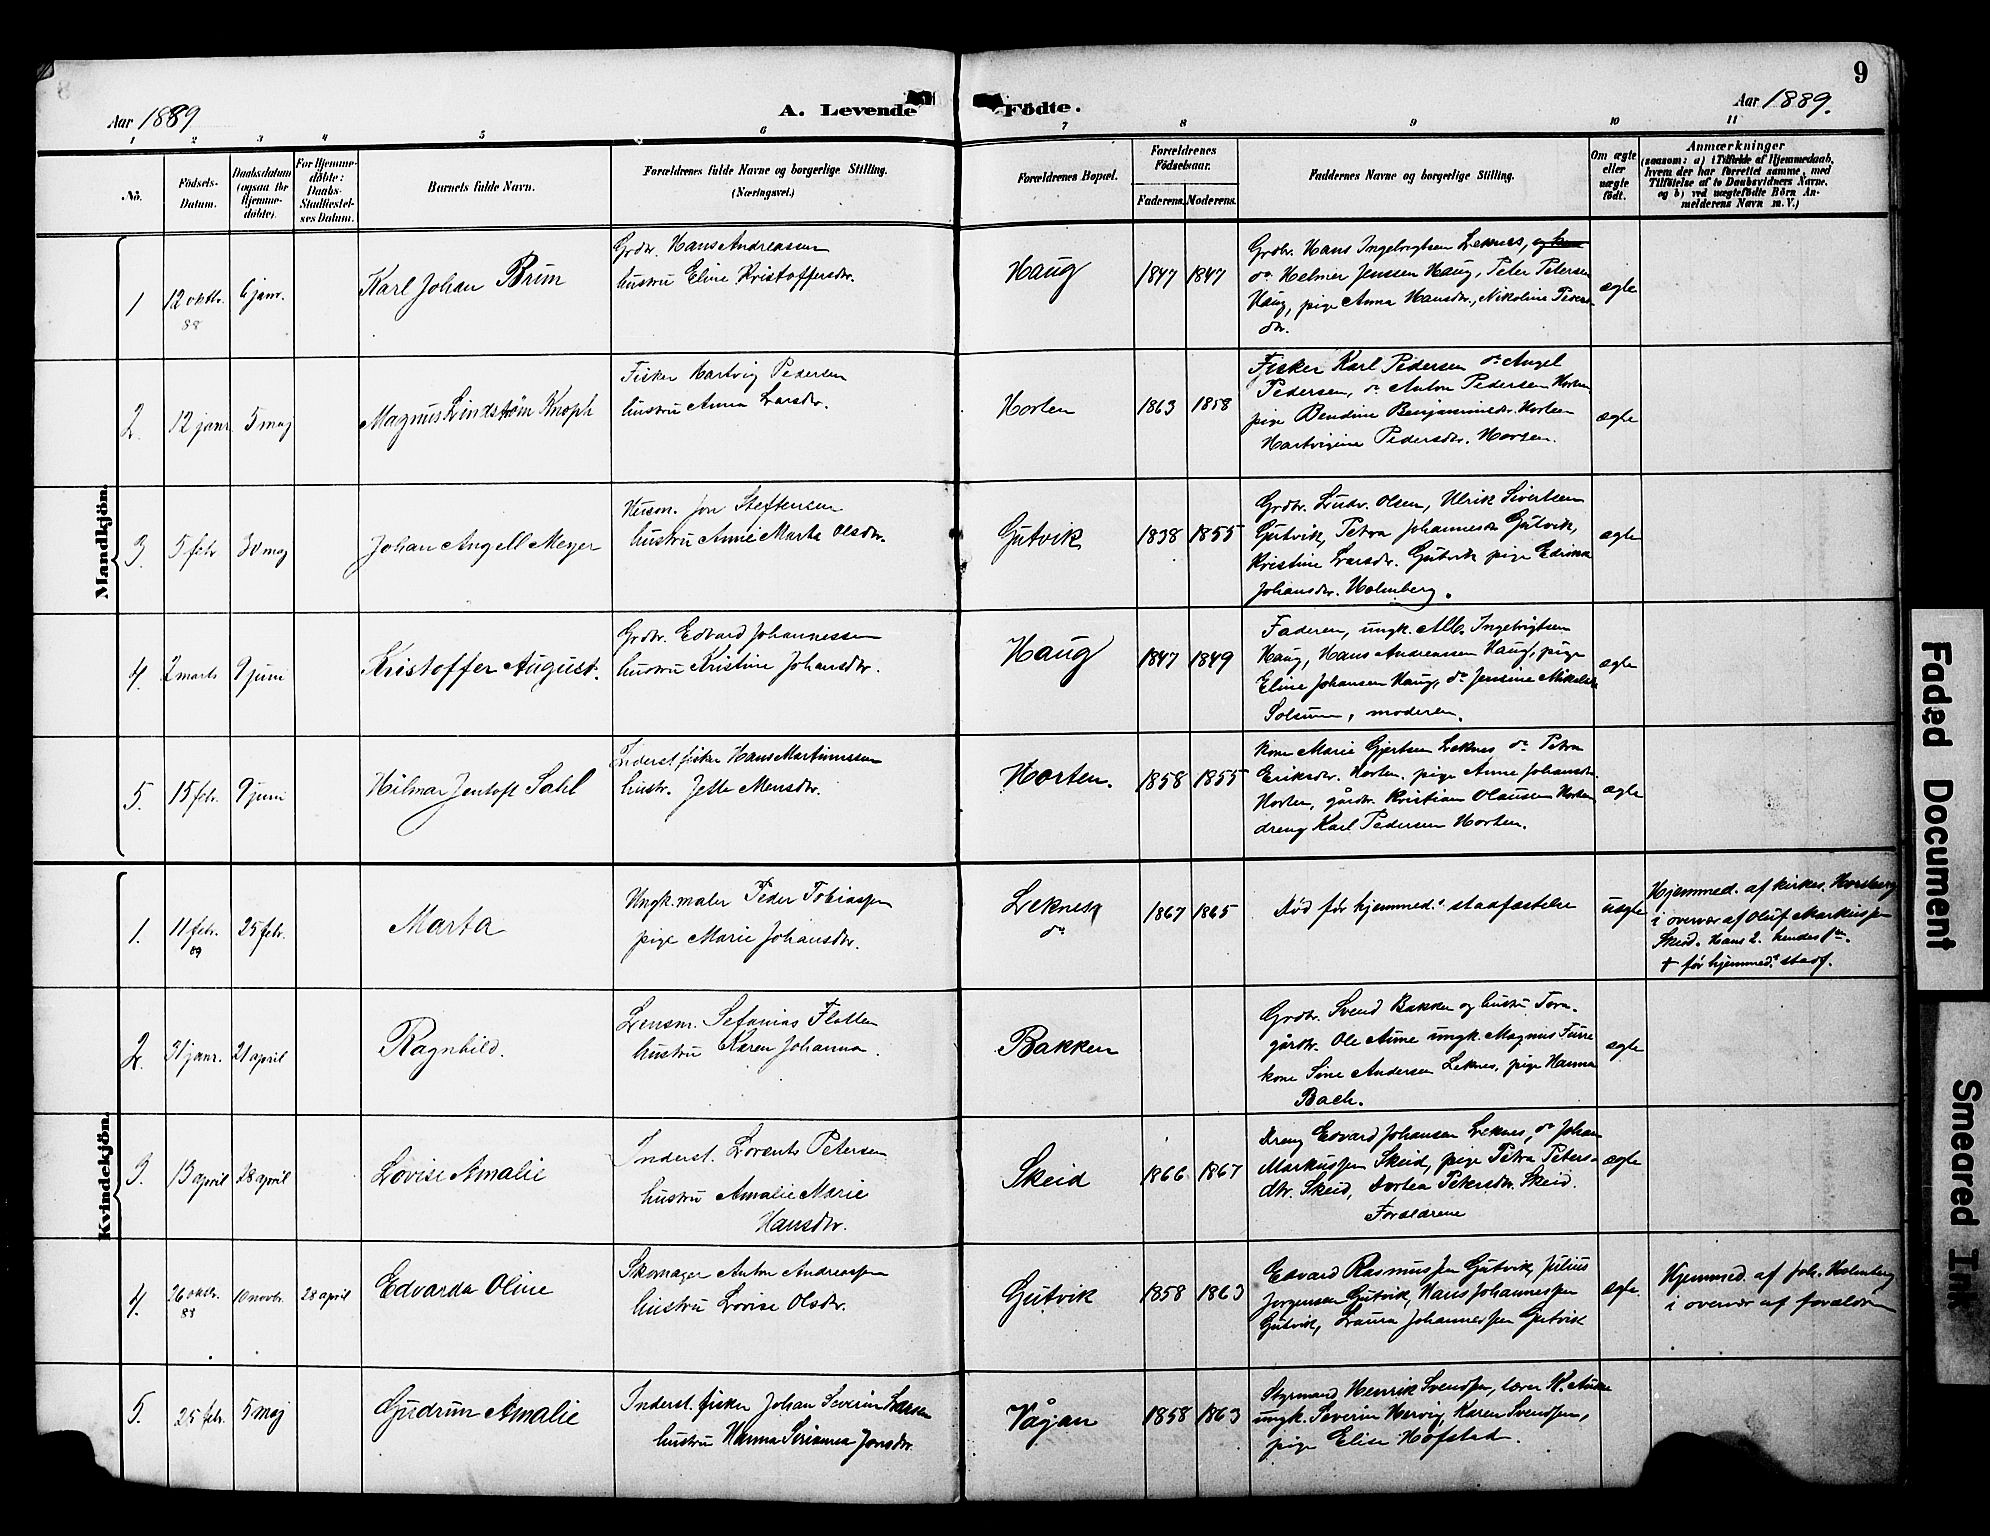 8
9
Aar 1889
A. Levende Födte.
Aar 1889.
1 2 3 4 5 6 7 8 9 10 11
No.
Födsels-
Datum.
Daabsdatum
(ogsaa for
Hjemme-
döbte).
For Hjemme-
döbte:
Daabs-
Stadfæstel-
ses Datum.
Barnets fulde Navn.
Forældrenes fulde Navne og borgerlige Stilling.
(Næringsvei.)
Forældrenes Bopæl.
Forældrenes
Födselsaar.
Faderens. Moderens.
Faddernes Navne og borgerlig Stilling.
Om ægte
eller
uægte
födt.
Anmærkninger
(saasom: a) i Tilfælde af Hjemmedaab,
hvem der har forrettet samme, med
Tilföielse af to Daabsvidners Navne,
og b) ved uægtefödte Börn An-
melderens Navn m. V.)
Mandkjön.
1
12 oktbr.
88
6 janr.
Karl Johan Brun
Grdbr. Hans Andreassen
hustru Eline Kristoffersdtr.
Haug
1847 1847
Grdbr. Hans Ingebrigtsen Leknes,
do. Helmer Jenssen Haug, Peter Petersen
Haug, pige Anna Hansdtr., Nikoline Peters-
dtr.
ægte
2.
12 janr
5 maj
Magnus Lindstrøm Knoph
Fisker Hartvig Pedersen
hustru Anna Larsdtr.
Horten
1863 1858
Fisker Karl Pedersen do. Angel
Pedersen, do. Anton Pedersen Horten
pige Bendine Benjaminsdtr. Horten
Hartvigine Pedersdtr. Horten.
ægte
3.
5 febr
30 maj
Johan Angell Meyer
Husm. Jon Steffensen
hustru Anne Marta Olsdtr.
Gutvik
1838 1855
Grdbr. Ludv. Olsen, Ulrik Sivertsen
Gutvik, Petra Johannesdtr. Gutvik,
Kristine Larsdtr. Gutvik pige
Johansdtr. Holmberg.
ægte
4.
2 marts
9 juni
Kristoffer August.
Grdbr. Edvard Johannessen
hustru Kristine Johansdtr.
Haug
1847 1849
Faderen, ungk. Alb. Ingebrigtsen
Haug, Hans Andreassen Haug, pige
Eline Johansen Haug, do. Jensine
Solsum, moderen.
ægte
5.
15 febr.
9 juni
Hilmar Jentoft Sahl
Inderst fisker Hans Martinussen
hustr. Jette Mensdtr.
Horten.
1858 1855
kone Marie Gjertsen Leknes do. Petra
Eriksdtr. Horten. pige Anne Johansdtr.
Horten, gårdbr. Kristian Olausen Horten
dreng Karl Pedersen Horten.
ægte
Kvindekjön.
1.
11 febr.
89
25 febr.
Marta
Ungk. maler Peder Tobiassen
pige Marie Johansdtr.
Leknes
do
1867 1865
Død før hjemmed. stadfæstelse
uægte
Hjemmed. af kirkes. Horsberg
i overvær af Oluf Markussen
Skeid. Hans 2. hendes
† før hjemmed. stadf.
2.
31 janr.
21 april
Ragnhild.
Lensm. Sefanias Flatten
hustru Karen Johanna.
Bakken
Grdbr. Svend Bakken og hustru
gårdbr. Ole Aune ungk. Magnus Furre
kone Sine Andersen Leknes, pige Hanna
Bach.
ægte
3.
13 april
28 april
Lovise Amalie
Inderst. Lorents Petersen
hustru Amalie Marie
Hansdtr.
Skeid
1866 1867
Dreng Edvard Johansen Leknes, do Johan
Markussen Skeid, pige Petra Peters-
dtr. Skeid, Dortea Petersdtr. Skeid.
Forældrene
ægte
4.
26 oktbr.
88
10 novbr.
28 april
Edvarda Oline
Skomager Anton Andreassen
hustru Lovise Olsdtr.
Gutvik
1858 1863
Edvard Rasmussen Gutvik, Julius
Jørgensen Gutvik, Hans Johannessen
Gutvik, Laura Johannessen Gutvik
ægte.
Hjemmed. af Joh. Holmberg
i overvær af forældrene
5.
25 febr.
5 maj
Gudrun Amalie
Inderst. fisker Johan Severin Larsen
hustru Hanna Jonsdtr.
Vågan
1858 1863
Styrmand Henrik Svendsen, lærer K. Aune
ungk. Severin Hervig, Karen Svendsen,
pige Elise Hofstad.
Faded Document
Smeared Ink